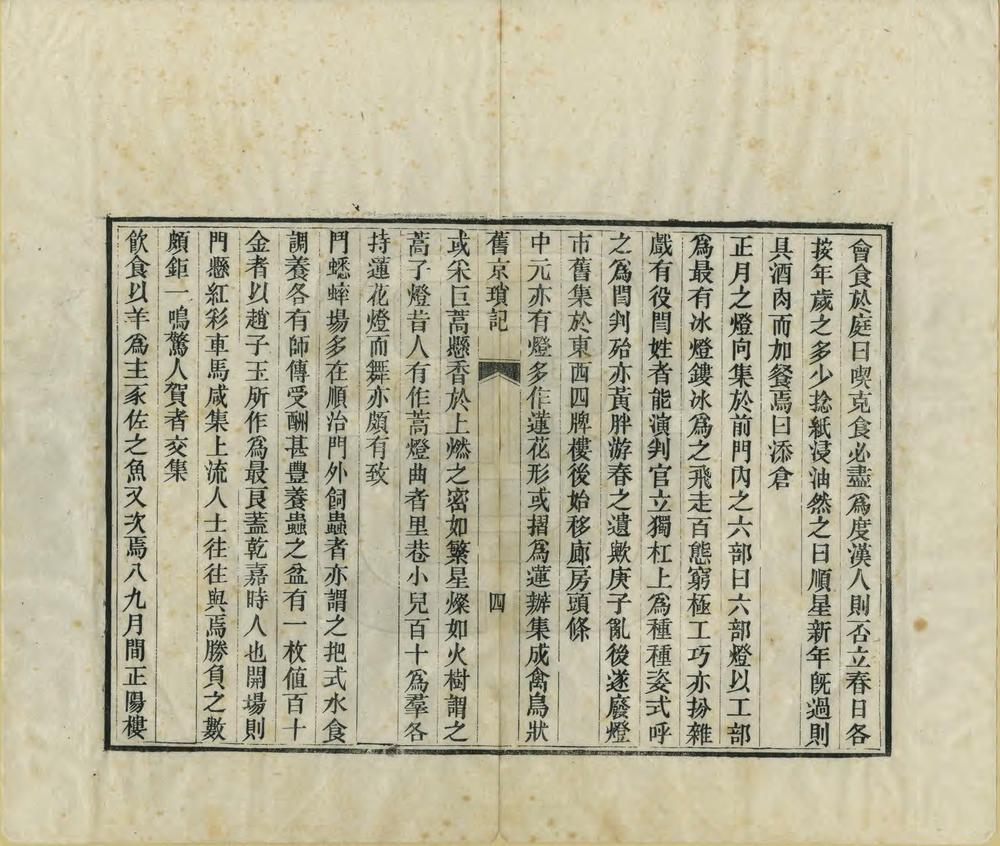 會食於庭曰喫克食必盡爲度漢人則否立春日各
按年歲之多少捻紙浸油然之曰順星新年旣過則
具酒肉而加餐焉曰添倉
正月之燈向集於前門內之六部曰六部燈以工部
爲最有冰燈鏤冰爲之飛走百態窮極工巧亦扮雜
戲有役閆姓者能演判官立獨杠上爲種種姿式呼
之爲閆判殆亦黃胖游春之遺歟庚子亂後遂廢燈
市舊集於東西四牌樓後始移廊房頭條
中元亦有燈多作蓮花形或摺爲蓮瓣集成禽鳥狀
舊京瑣記
四
或采巨蒿懸香於上燃之密如繁星燦如火樹謂之
蒿子燈昔人有作蒿燈曲者里巷小兒百十爲羣各
持蓮花燈而舞亦頗有致
鬥蟋蟀場多在順治門外飼蟲者亦謂之把式水食
調養各有師傳受酬甚豐養蟲之盆有一枚值百十
金者以趙子玉所作爲最良蓋乾嘉時人也開場則
門懸紅彩車馬咸集上流人士往往與焉勝負之數
頗鉅一鳴驚人賀者交集
飮食以羊爲主豕佐之魚又次焉八九月間正陽樓